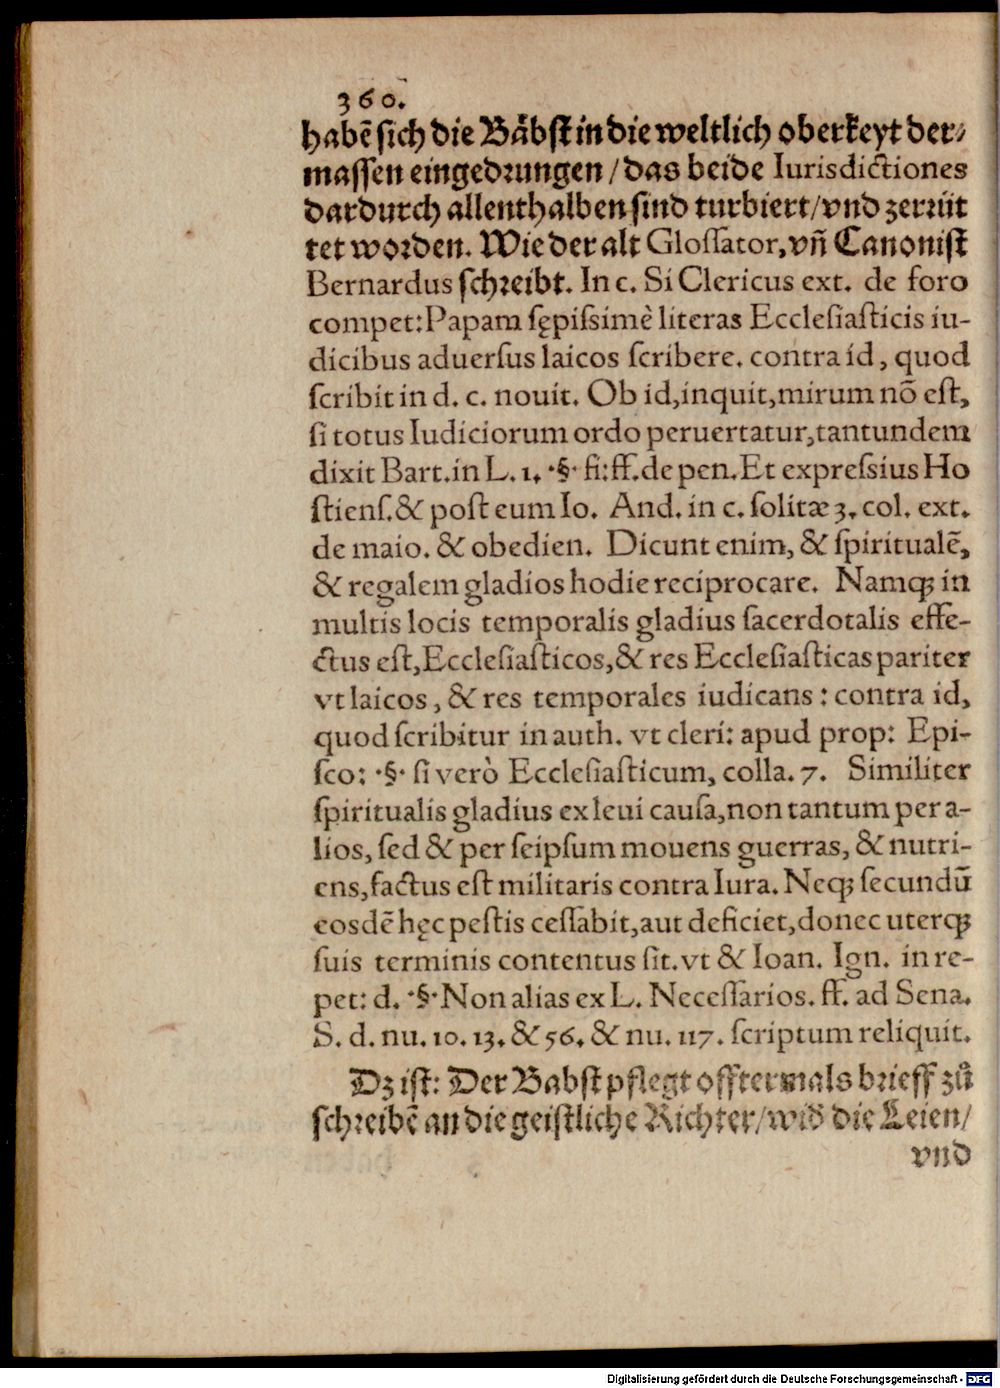 360.
habē sich die Bäbst in die weltlich oberkeyt der⸗
massen eingedrungen / das beide Iurisdictiones
dardurch allenthalben sind turbiert/vnd zerrüt
tet worden. Wie der alt Glossator, vñ Canonist
Bernardus schreibt. In c. Si Clericus ext. de foro
compet: Papam sępissimè literas Ecclesiasticis iu-
dicibus aduersus laicos scribere. contra id, quod
scribit in d. c. nouit. Ob id, inquit, mirum nō est,
si totus Iudiciorum ordo peruertatur, tantundem
dixit Bart. in L. 1. ·§· fi: ff. de pen. Et expressius Ho
stiens. & post eum Io. And. in c. solitæ 3. col. ext.
de maio. & obedien. Dicunt enim, & spiritualē,
& regalem gladios hodie reciprocare. Namq; in
multis locis temporalis gladius sacerdotalis effe-
ctus est, Ecclesiasticos, & res Ecclesiasticas pariter
vt laicos, & res temporales iudicans: contra id,
quod scribitur in auth. vt cleri: apud prop: Epi-
sco: ·§· si verò Ecclesiasticum, colla. 7. Similiter
spiritualis gladius ex leui causa, non tantum per a-
lios, sed & per seipsum mouens guerras, & nutri-
ens, factus est militaris contra Iura. Neq; secundū
eosdē hęc pestis cessabit, aut deficiet, donec uterq;
suis terminis contentus sit. vt & Ioan. Ign. in re-
pet: d. ·§· Non alias ex L. Necessarios. ff. ad Sena.
S. d. nu. 10. 13. & 56. & nu. 117. scriptum reliquit.
Dz ist: Der Babst pflegt offtermals brieff zů
schreibē an die geistliche Richter/ wid̄ die Leien/
vnd
Digitalisierung gefördert durch die Deutsche Forschungsgemeinschaft - DFG